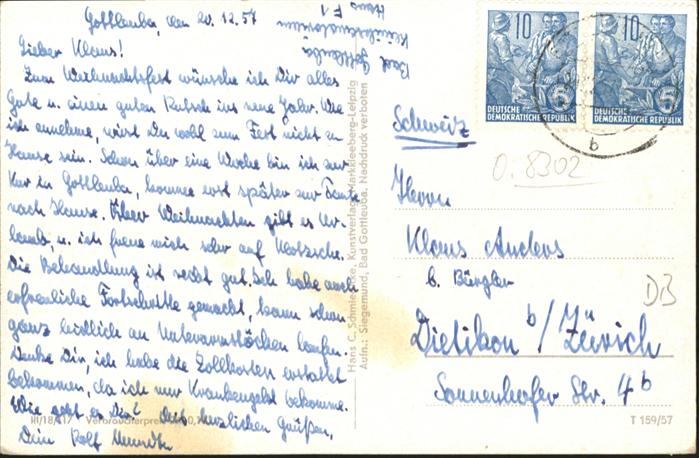 Gottleuba, den 20.12.57
Bad Gottleuba
Kliniksanatorium
Haus F1
Lieber Klaus!
Zum Weihnachtsfest wünsche ich Dir alles
Gute u. einen guten Rutsch ins neue Jahr. Wie
ich annehme, wirst Du wohl zum Fest nicht zu
Hause sein. Schon über eine Woche bin ich zur
Kur in Gottleuba, komme erst später zur Tante
nach Hause. Über Weihnachten gibt es Ur-
laub, u. ich freue mich sehr auf Klotzsche.
Die Behandlung ist recht gut. Ich habe auch
erfreuliche Fortschritte gemacht, kann schon
ganz leidlich an Unterarmstöcken laufen.
Denke Dir, ich habe die Zollkosten erstattet
bekommen, da ich nur Krankengeld bekomme.
Wie geht es Dir? Mit herzlichen Grüßen,
Dein Rolf
III/18/417 Verbraucherpreis
Hans C. Schmiedicke, Kunstverlag, Markkleeberg-Leipzig
Aufn.: Siegemund, Bad Gottleuba. Nachdruck verboten
10 5
DEUTSCHE
DEMOKRATISCHE REPUBLIK
10 5
DEUTSCHE
DEMOKRATISCHE REPUBLIK
b
Schweiz
O. 8302
Herrn
Klaus Anders
b. Bürgler
DB
Dietikon b/Zürich
Sonnenhofer Str. 4b
T 159/57